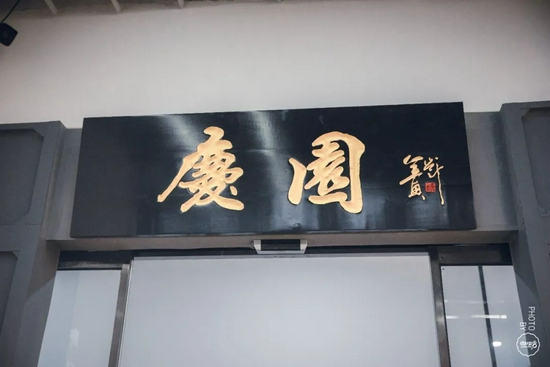 慶園
PHOTO BY